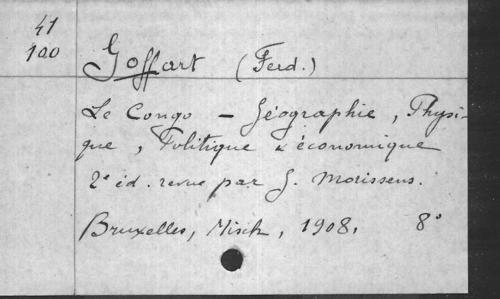 41
100
Goffart (Ferd.)
Le Congo – Géographie, Physi-
que, Politique & économique
2e éd. revue par G. Morissens.
Bruxelles, Misch, 1908. 8°